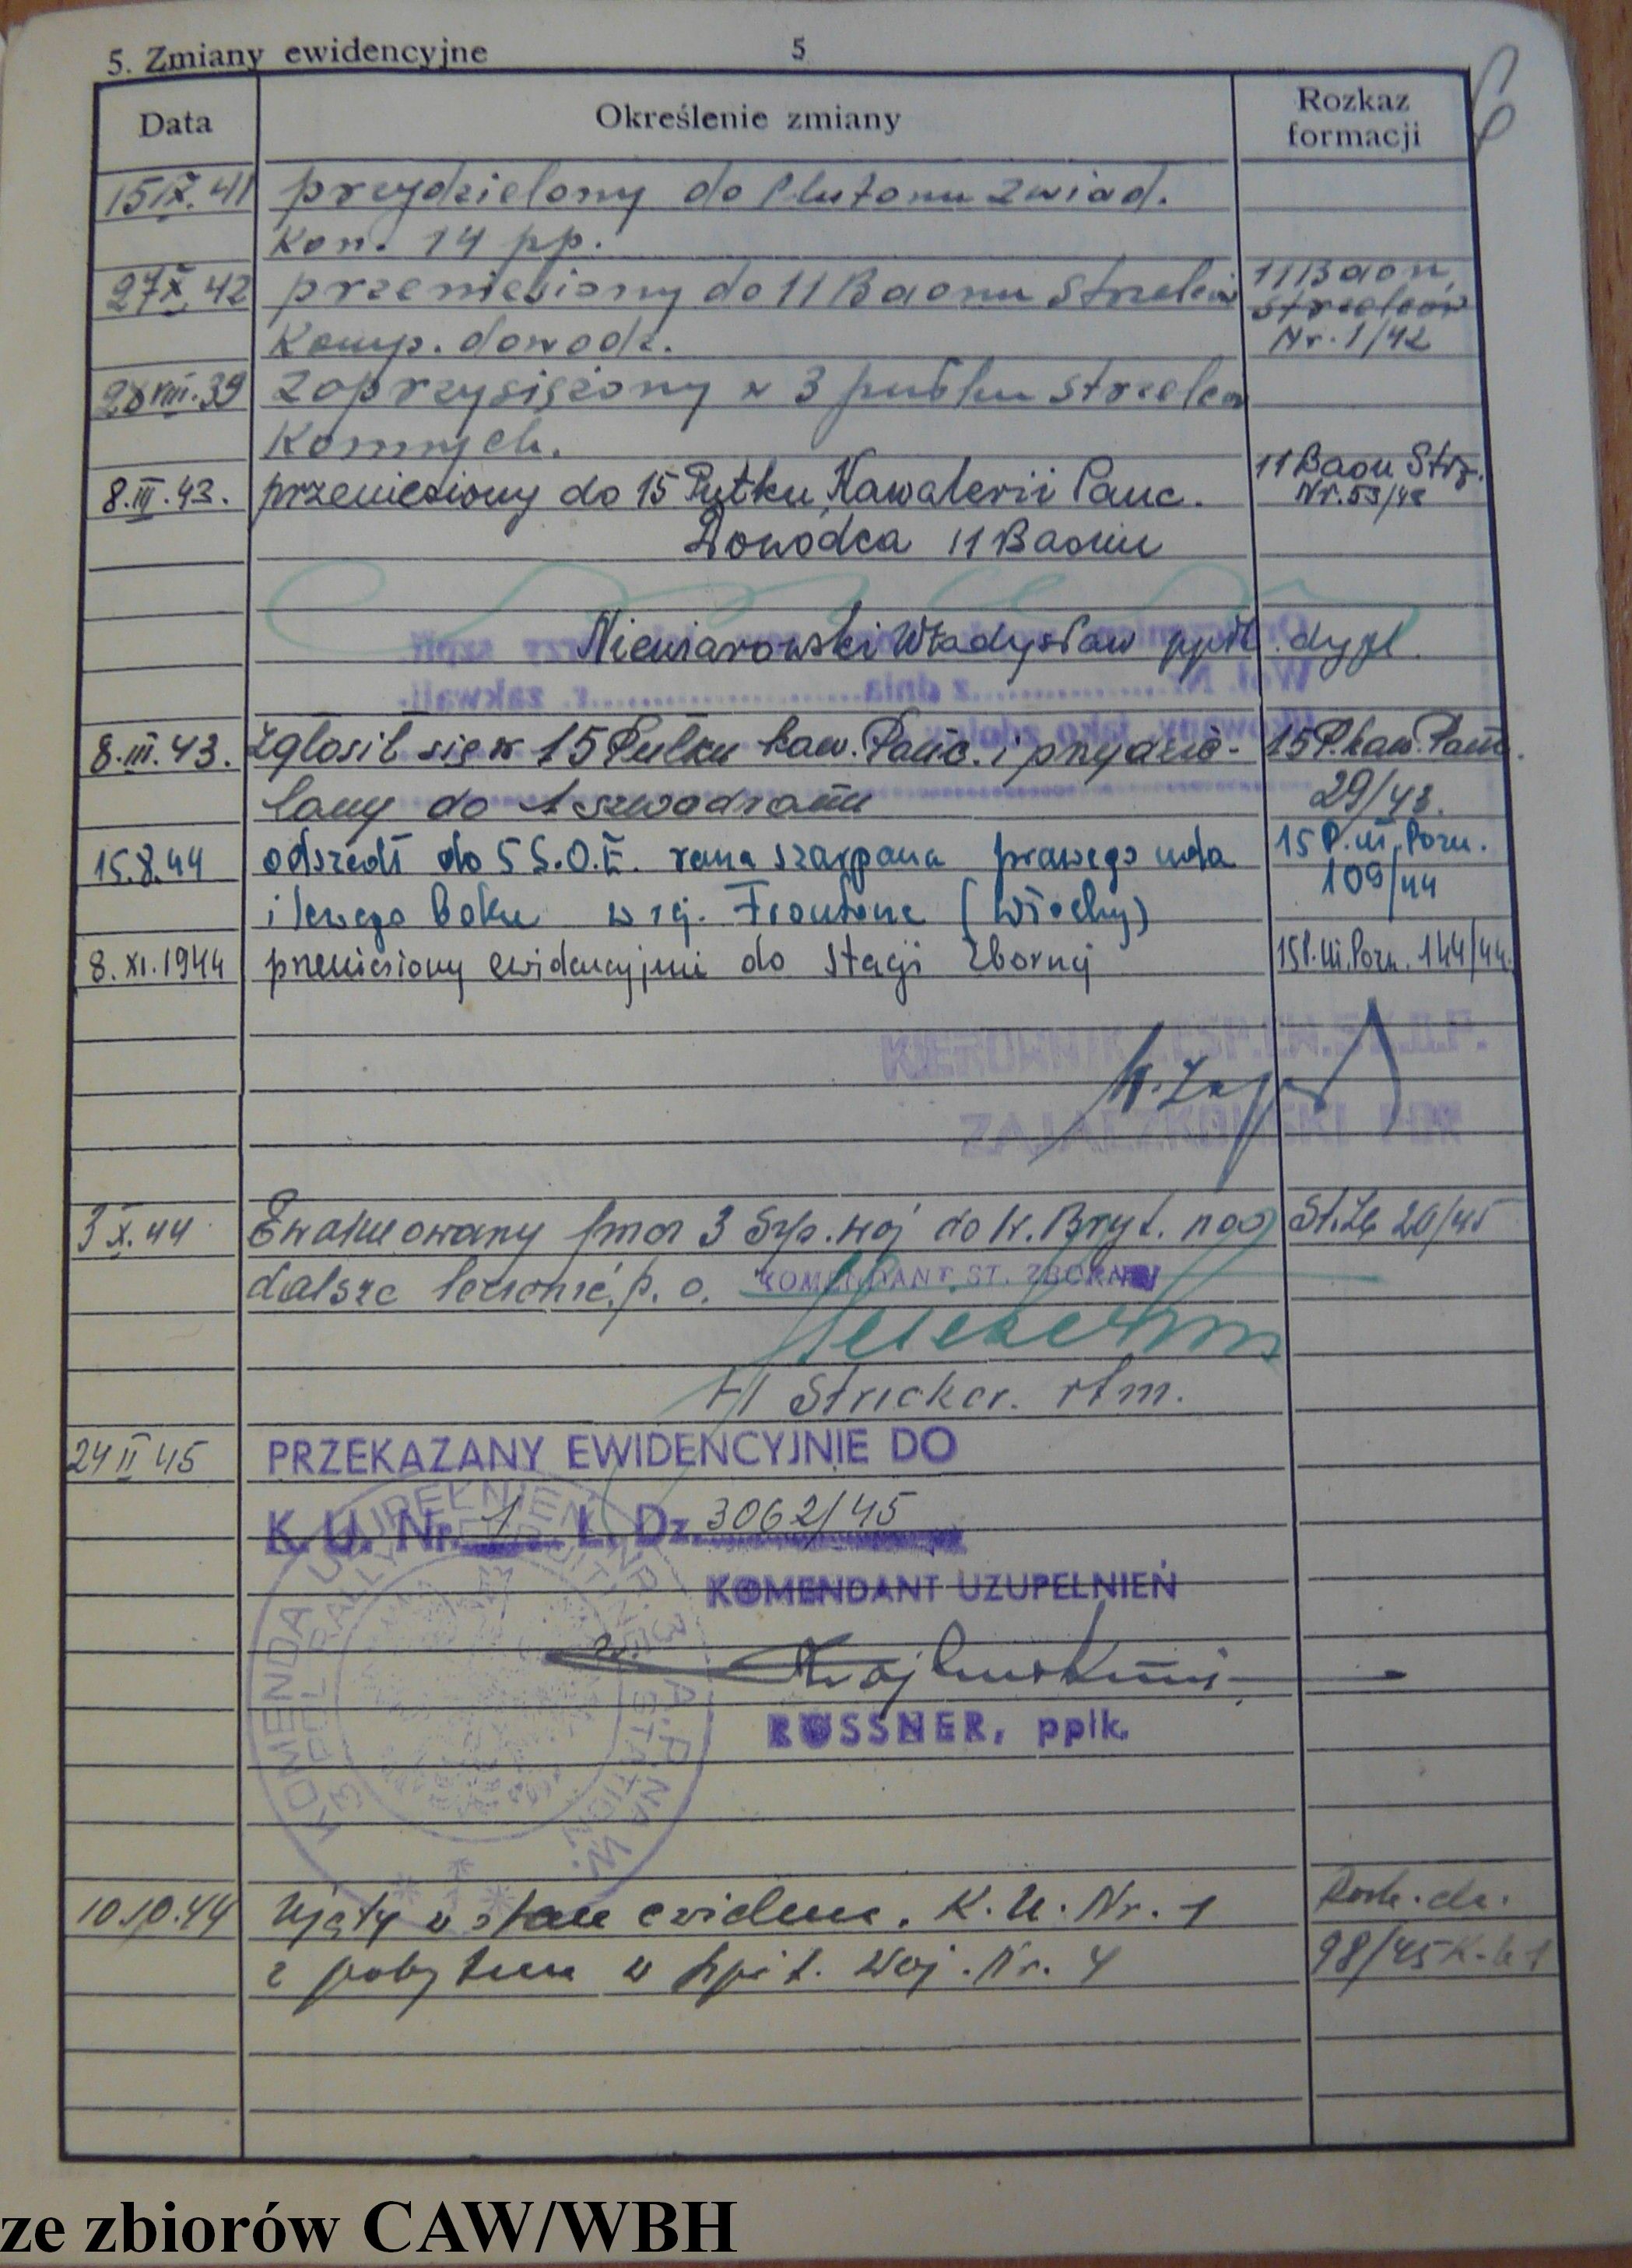 5. Zmiany ewidencyjne 5
Data Określenie zmiany Rozkaz formacji
15 IX. 41 przydzielony do Plutonu zwiad.
Kon. 14 pp.
27 X. 42 przeniesiony do 11 Baonu Strzelców 11 Baon
Komp. dowodz. strzelców
Nr. 1/42
28 VIII. 39 Zaprzysiężony w 3 pułku strzelców
Konnych.
8.III.43. przeniesiony do 15 Pułku Kawalerii Panc. 11 Baon Strz.
Nr. 53/43
Dowódca 11 Baonu
Niewiarowski Władysław ppłk. dypl.
8.III.43. Zgłosił się w 15 Pułku kaw. Panc. i przydzie- 15 P. kaw. Panc.
lony do 1 szwadronu 29/43.
15.8.44 odszedł do 5 S.O.E. rana szarpana prawego uda 15 P. uł. Pozn.
i lewego boku w rej. Frontone (Włochy) 109/44
8.XI.1944 przeniesiony ewidencyjnie do Stacji Zbornej 15 P. uł. Pozn. 144/44.
3 X. 44 Ewakuowany przez 3 Szp. woj do W. Bryt. na St. Zb 20/45
dalsze leczenie. p. o. KOMENDANT ST. ZBORNEJ
H Stricker. rtm.
24 II 45 PRZEKAZANY EWIDENCYJNIE DO
K. U. Nr. 1 L. Dz. 3062/45
KOMENDANT UZUPEŁNIEŃ
ROSSNER, ppłk.
KOMENDA UZUPEŁNIEŃ NR. 3
10.10.44 Ujęty w stan ewidenc. K. U. Nr. 1 Rozk. dz.
z pobytem w szpit. Woj. Nr. 4 98/45 K. U 1
ze zbiorów CAW/WBH